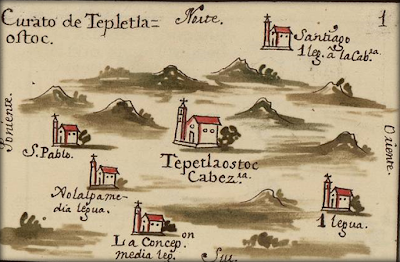 Curato de Tepletla=
ostoc.
Norte.
1
Santiago
1 leg. a la Cab.ra
Poniente.
Oriente.
S. Pablo.
Tepetlaostoc
Cabez.ra
Nolalpa me-
dia legua.
1 legua.
La Concep.on
media leg.
Sur.